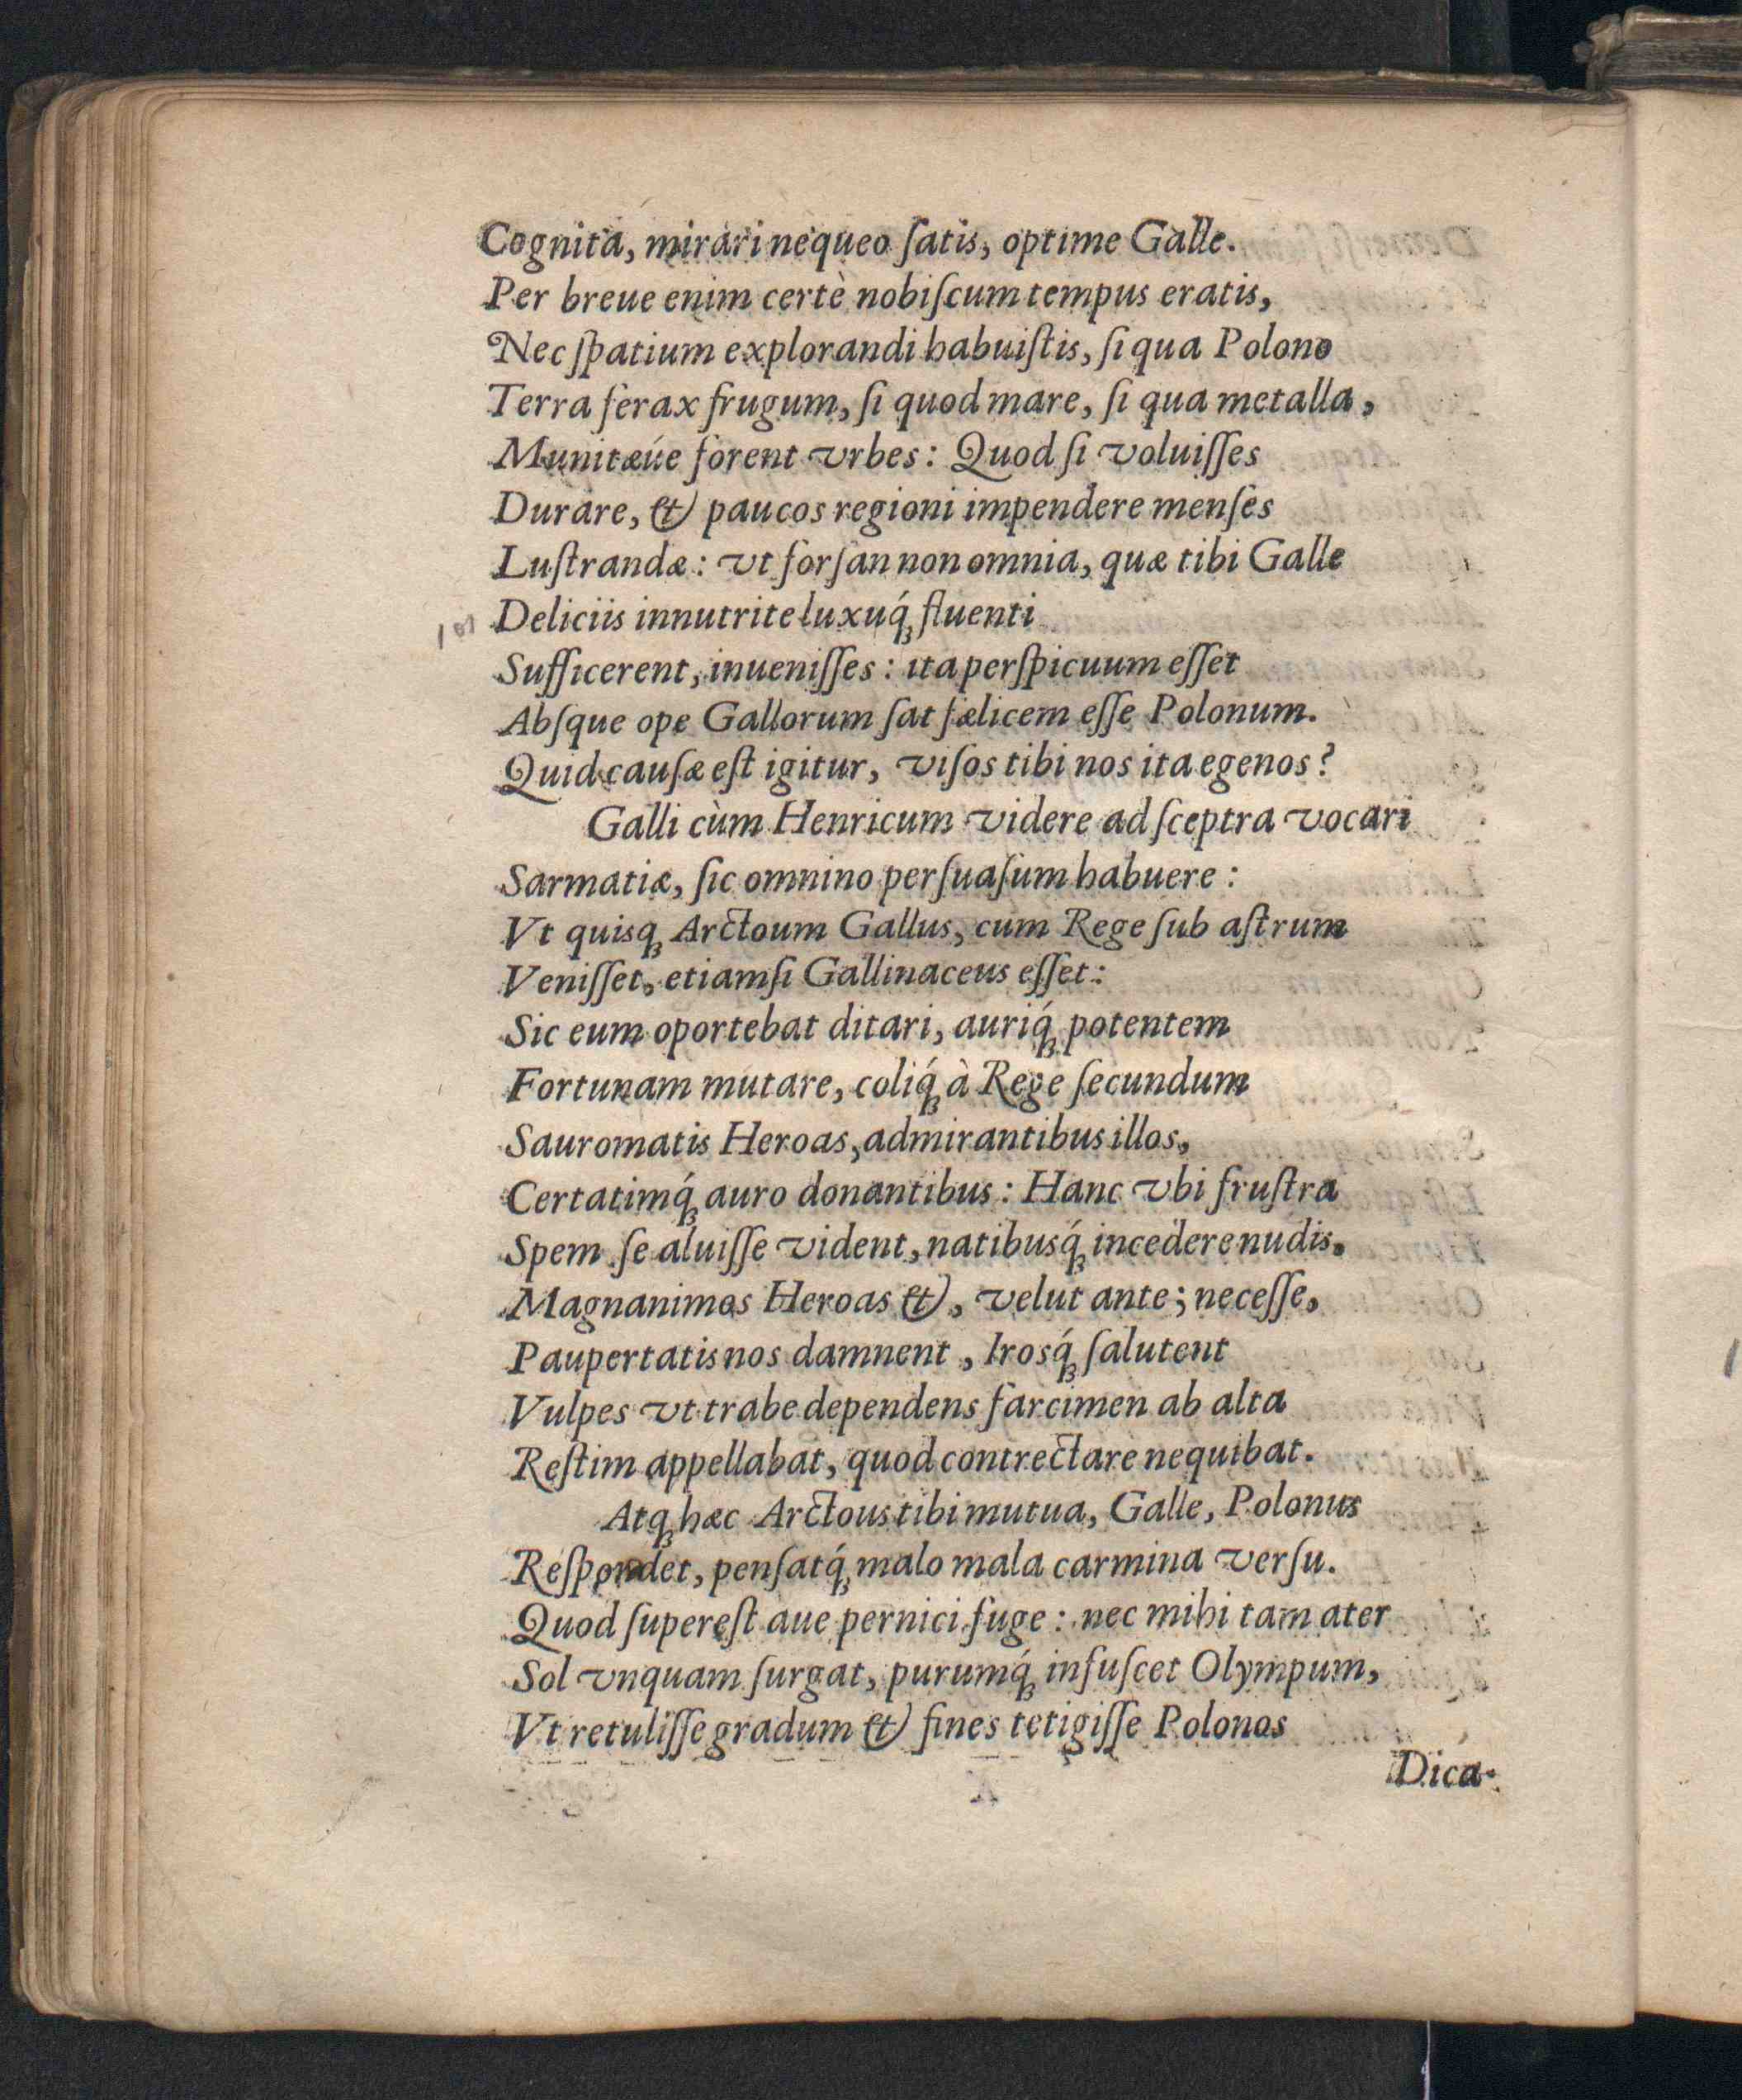 Cognita, mirari nequeo ſatis, optime Galle.
Per breue enim certè nobiſcum tempus eratis,
Nec ſpatium explorandi habuiſtis, ſi qua Polono
Terra ferax frugum, ſi quod mare, ſi qua metalla,
Munitæúe forent vrbes: Quod ſi voluiſſes
Durare, & paucos regioni impendere menſes
Luſtrandæ: vt forſan non omnia, quæ tibi Galle
Deliciis innutrite luxuq́; fluenti
Sufficerent, inueniſſes: ita perſpicuum eſſet
Abſque ope Gallorum ſat fælicem eſſe Polonum.
Quid cauſæ eſt igitur, viſos tibi nos ita egenos?
Galli cùm Henricum videre ad ſceptra vocari
Sarmatiæ, ſic omnino perſuaſum habuere:
Vt quisq; Arctoum Gallus, cum Rege ſub aſtrum
Veniſſet, etiamſi Gallinaceus eſſet:
Sic eum oportebat ditari, auriq́; potentem
Fortunam mutare, coliq́; à Rege ſecundum
Sauromatis Heroas, admirantibus illos,
Certatimq́; auro donantibus: Hanc vbi fruſtra
Spem ſe aluiſſe vident, natibusq́; incedere nudis,
Magnanimos Heroas &, velut ante; neceſſe,
Paupertatis nos damnent, Irosq́; ſalutent
Vulpes vt trabe dependens farcimen ab alta
Reſtim appellabat, quod contrectare nequibat.
Atq; hæc Arctous tibi mutua, Galle, Polonus
Reſpondet, penſatq́; malo mala carmina verſu.
Quod ſupereſt aue pernici fuge: nec mihi tam ater
Sol vnquam ſurgat, purumq́; infuſcet Olympum,
Vt retuliſſe gradum & fines tetigiſſe Polonos
Dica-